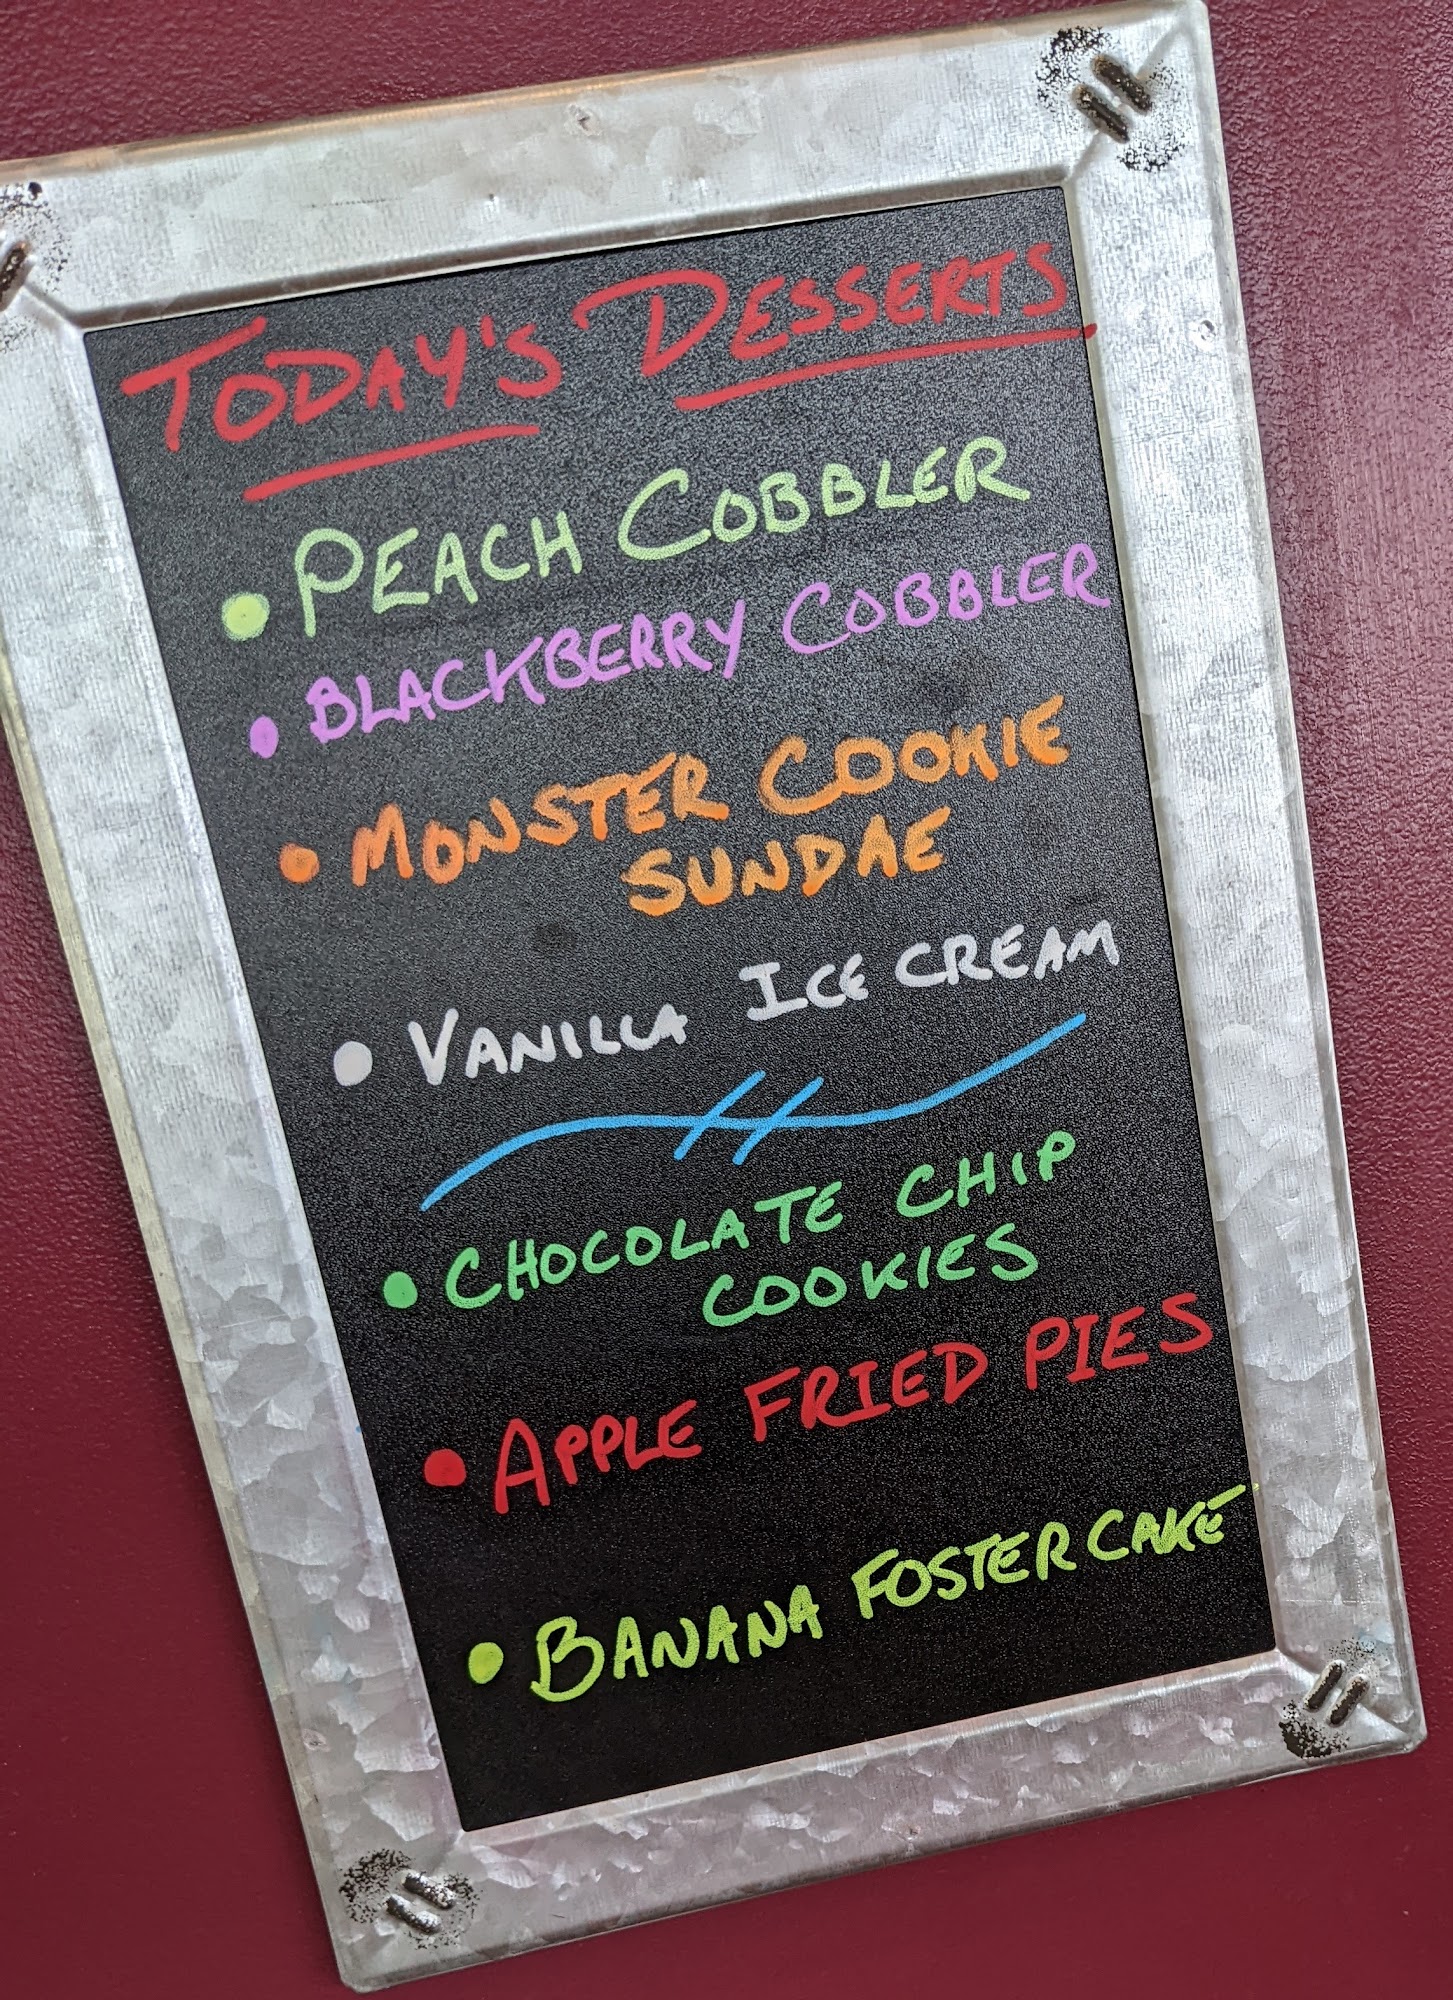 TODAY'S DESSERTS
• PEACH COBBLER
• BLACKBERRY COBBLER
• MONSTER COOKIE
SUNDAE
• VANILLA ICE CREAM
• CHOCOLATE CHIP
COOKIES
• APPLE FRIED PIES
• BANANA FOSTER CAKE